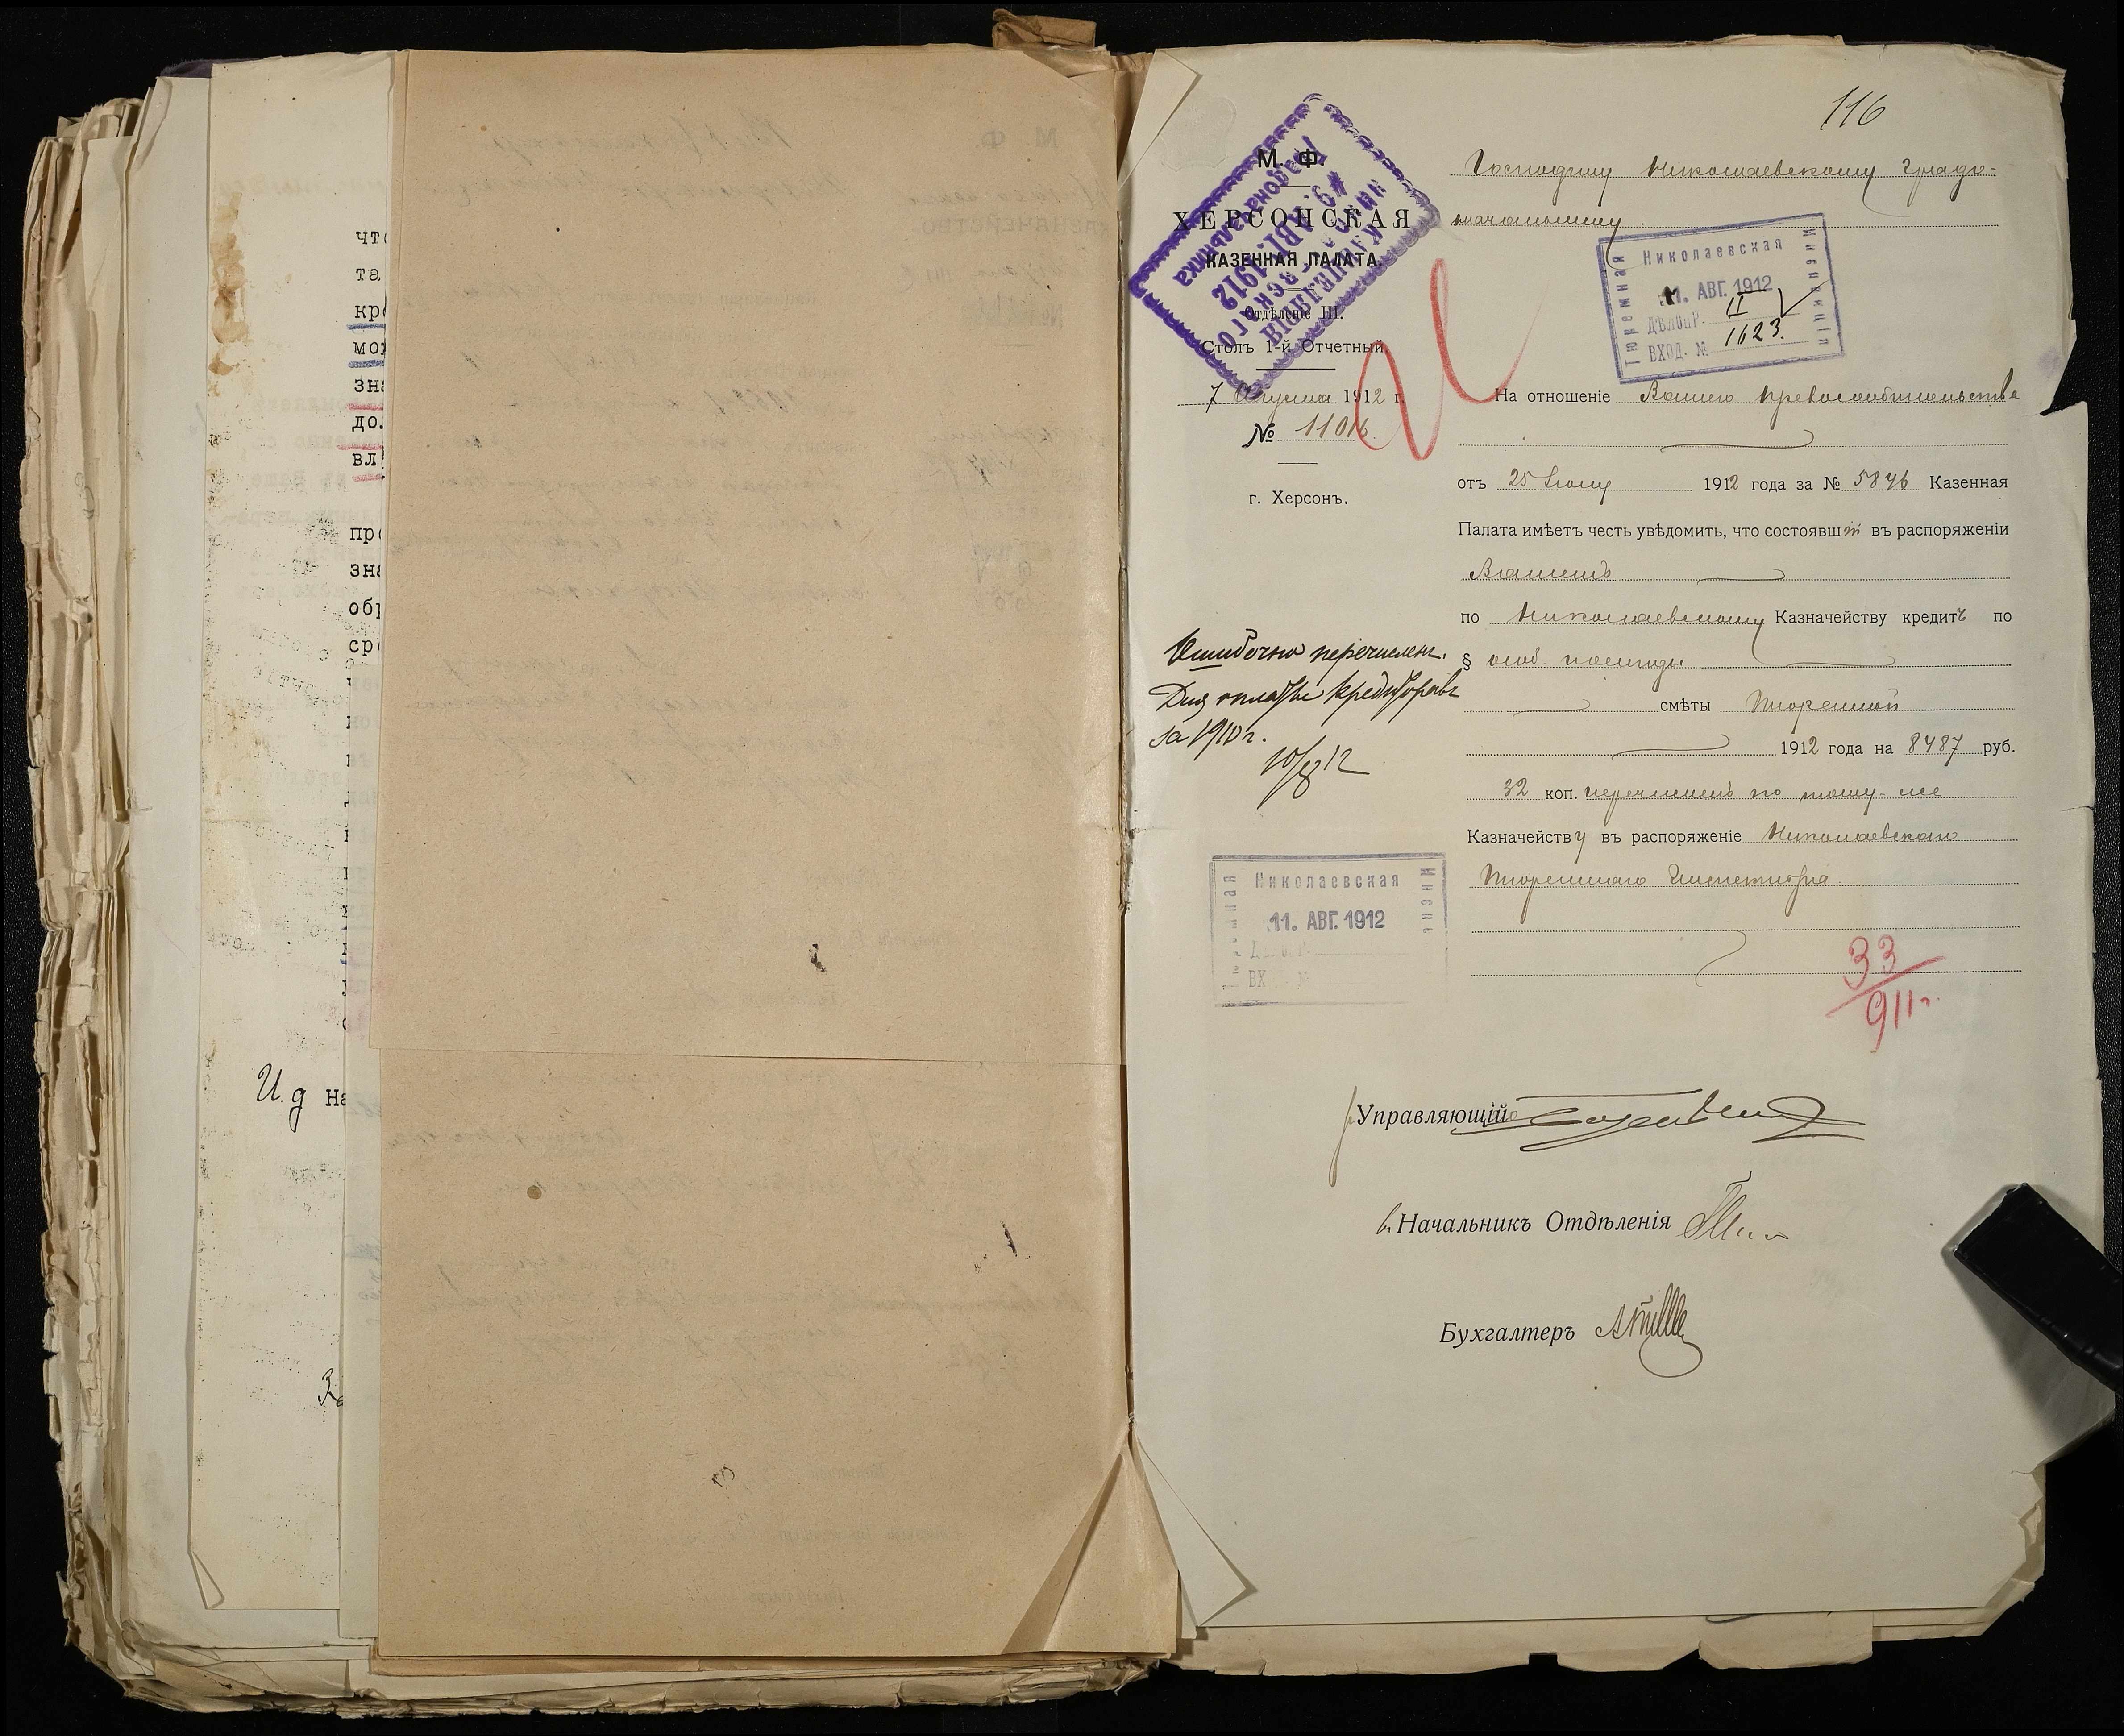 что
та
кр
мо
зна
до.
вл
про
зна
обр
сре
И. д На
116
М. Ф.
ХЕРСОНСКАЯ
КАЗЕННАЯ ПАЛАТА.
Отдѣленіе III.
Столъ 1-й Отчетный
7 Августа 1912 г.
№ 11016.
г. Херсонъ.
КАНЦЕЛЯРІЯ
Николаевскаго
*9. АВГ. 1912
Градоначальника
Господину Николаевскому Градо-
начальнику.
Николаевская
Тюремная
Инспекція
11. АВГ. 1912
ДѢЛОПР. II
ВХОД. № 1623.
На отношеніе Вашего Превосходительства
отъ 25 Іюля 1912 года за № 5846 Казенная
Палата имѣетъ честь увѣдомить, что состоявшій въ распоряженіи
Вашемъ
по Николаевскому Казначейству кредитъ по
§ особ. помѣщ.
смѣты Тюремной
1912 года на 8487 руб.
32 коп. перечисленъ по тому-же
Казначейству въ распоряженіе Николаевскаго
Тюремнаго Инспектора.
Ошибочно перечислен.
Для оплаты кредиторовъ
за 1910 г.
10/8 12
Николаевская
Тюремная
Инспе
11. АВГ. 1912
ВХ №
33/911 г.
Управляющій
Начальникъ Отдѣленія
Бухгалтеръ